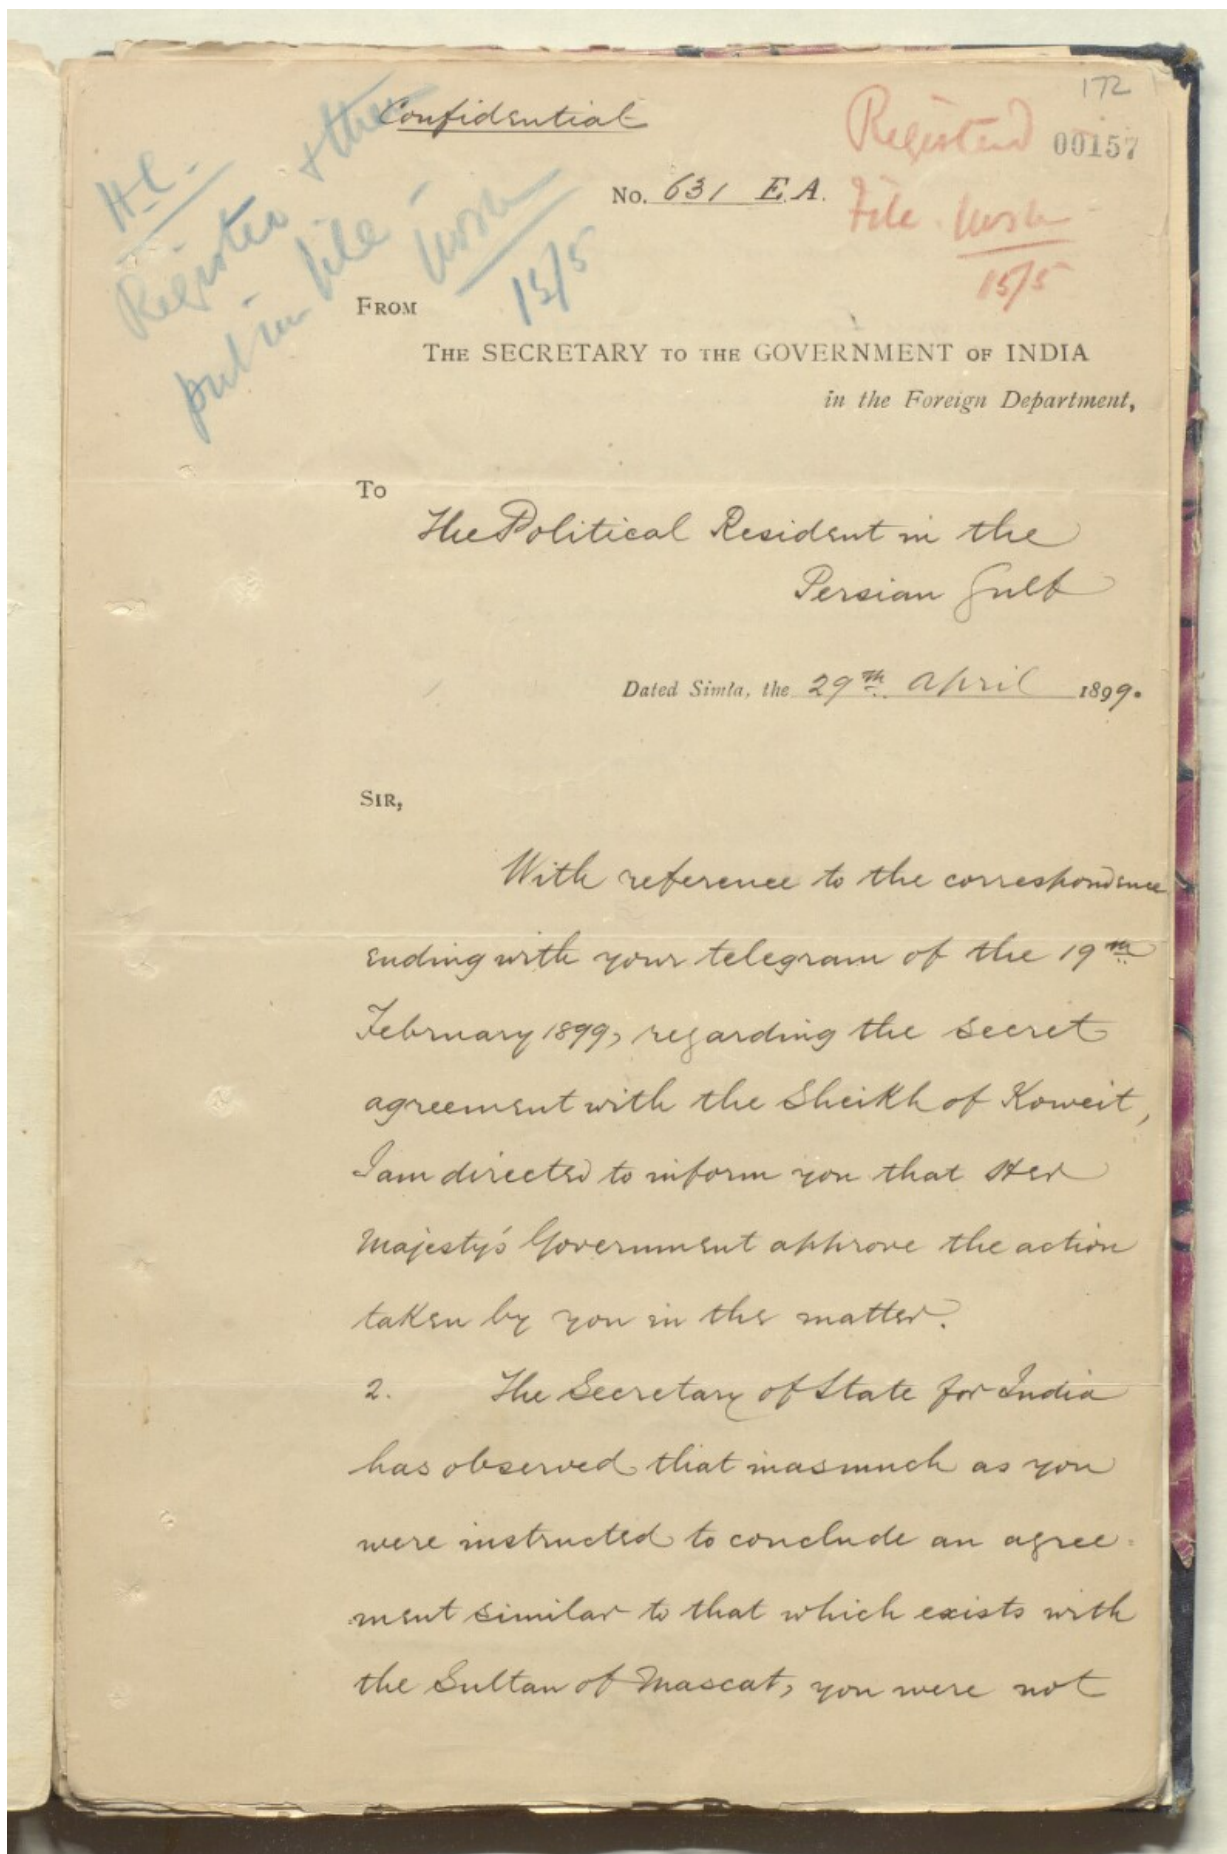 172
Confidential
Registered
00157
H.C.
Register & then
put in file
15/5
No. 631 E.A.
File.
15/5
FROM
THE SECRETARY TO THE GOVERNMENT OF INDIA
in the Foreign Department,
To
The Political Resident in the
Persian Gulf
Dated Simla, the 29th April 1899.
SIR,
With reference to the correspondence
ending with your telegram of the 19th
February 1899, regarding the secret
agreement with the Sheikh of Koweit,
I am directed to inform you that Her
Majesty's Government approve the action
taken by you in the matter.
2. The Secretary of State for India
has observed that inasmuch as you
were instructed to conclude an agree-
ment similar to that which exists with
the Sultan of Mascat, you were not